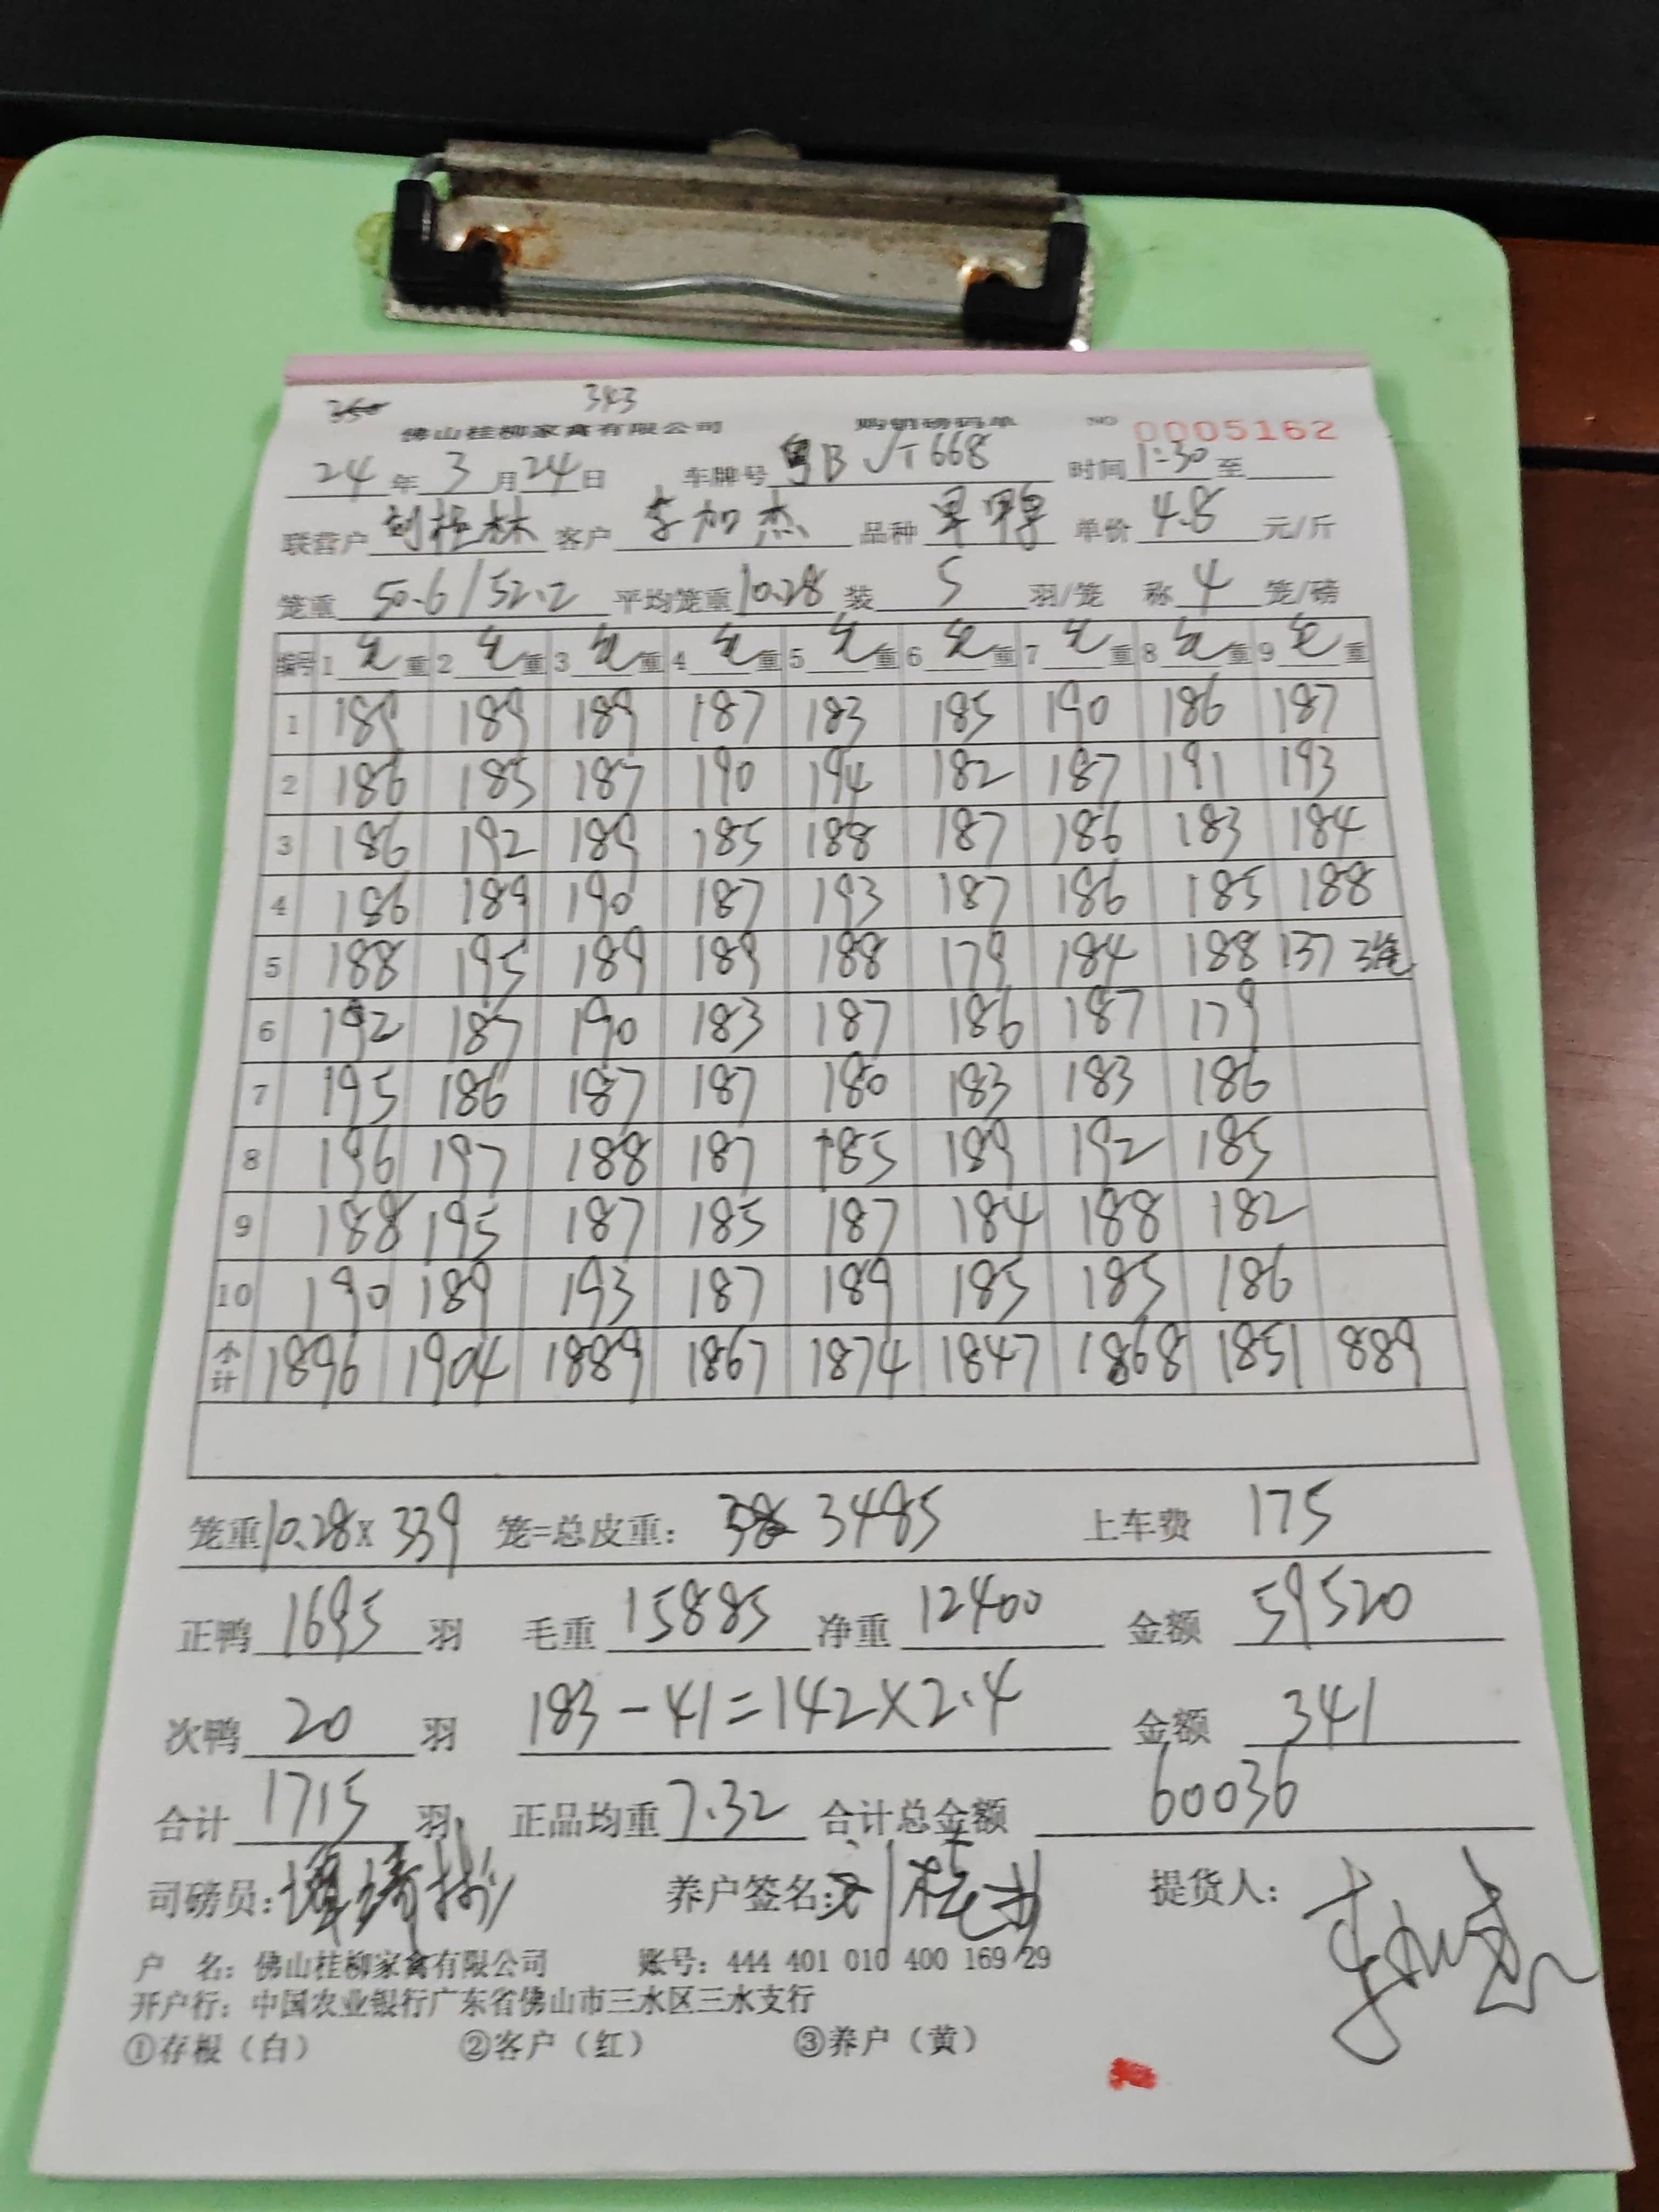 343
佛山桂柳家禽有限公司 购销磅码单 NO 0005162
24年3月24日 车牌号粤B JT668 时间1:30至
联营户刘桂林 客户李加杰 品种 单价4.8元/斤
笼重50.6/52.2 平均笼重10.28 装5羽/笼 称4笼/磅
编号 1毛重 2毛重 3毛重 4毛重 5毛重 6毛重 7毛重 8毛重 9毛重
1 189 189 189 187 183 185 190 186 187
2 186 185 187 190 194 182 187 191 193
3 186 192 189 185 188 187 186 183 184
4 186 189 190 187 193 187 186 185 188
5 188 195 189 189 188 179 184 188 137 3笼
6 192 187 190 183 187 186 187 179
7 195 186 187 187 180 183 183 186
8 196 197 188 187 185 189 192 185
9 188 195 187 185 187 184 188 182
10 190 189 193 187 189 185 185 186
小计 1896 1904 1889 1867 1874 1847 1868 1851 889
笼重10.28×339 笼=总皮重: 3485 上车费 175
正鸭1695羽 毛重15885 净重12400 金额 59520
次鸭20羽 183-41=142×2.4 金额 341
合计1715羽 正品均重7.32 合计总金额 60036
司磅员: 养户签名:刘桂林 提货人:
户 名: 佛山桂柳家禽有限公司 账号: 444 401 010 400 169 29
开户行: 中国农业银行广东省佛山市三水区三水支行
①存根（白） ②客户（红） ③养户（黄）